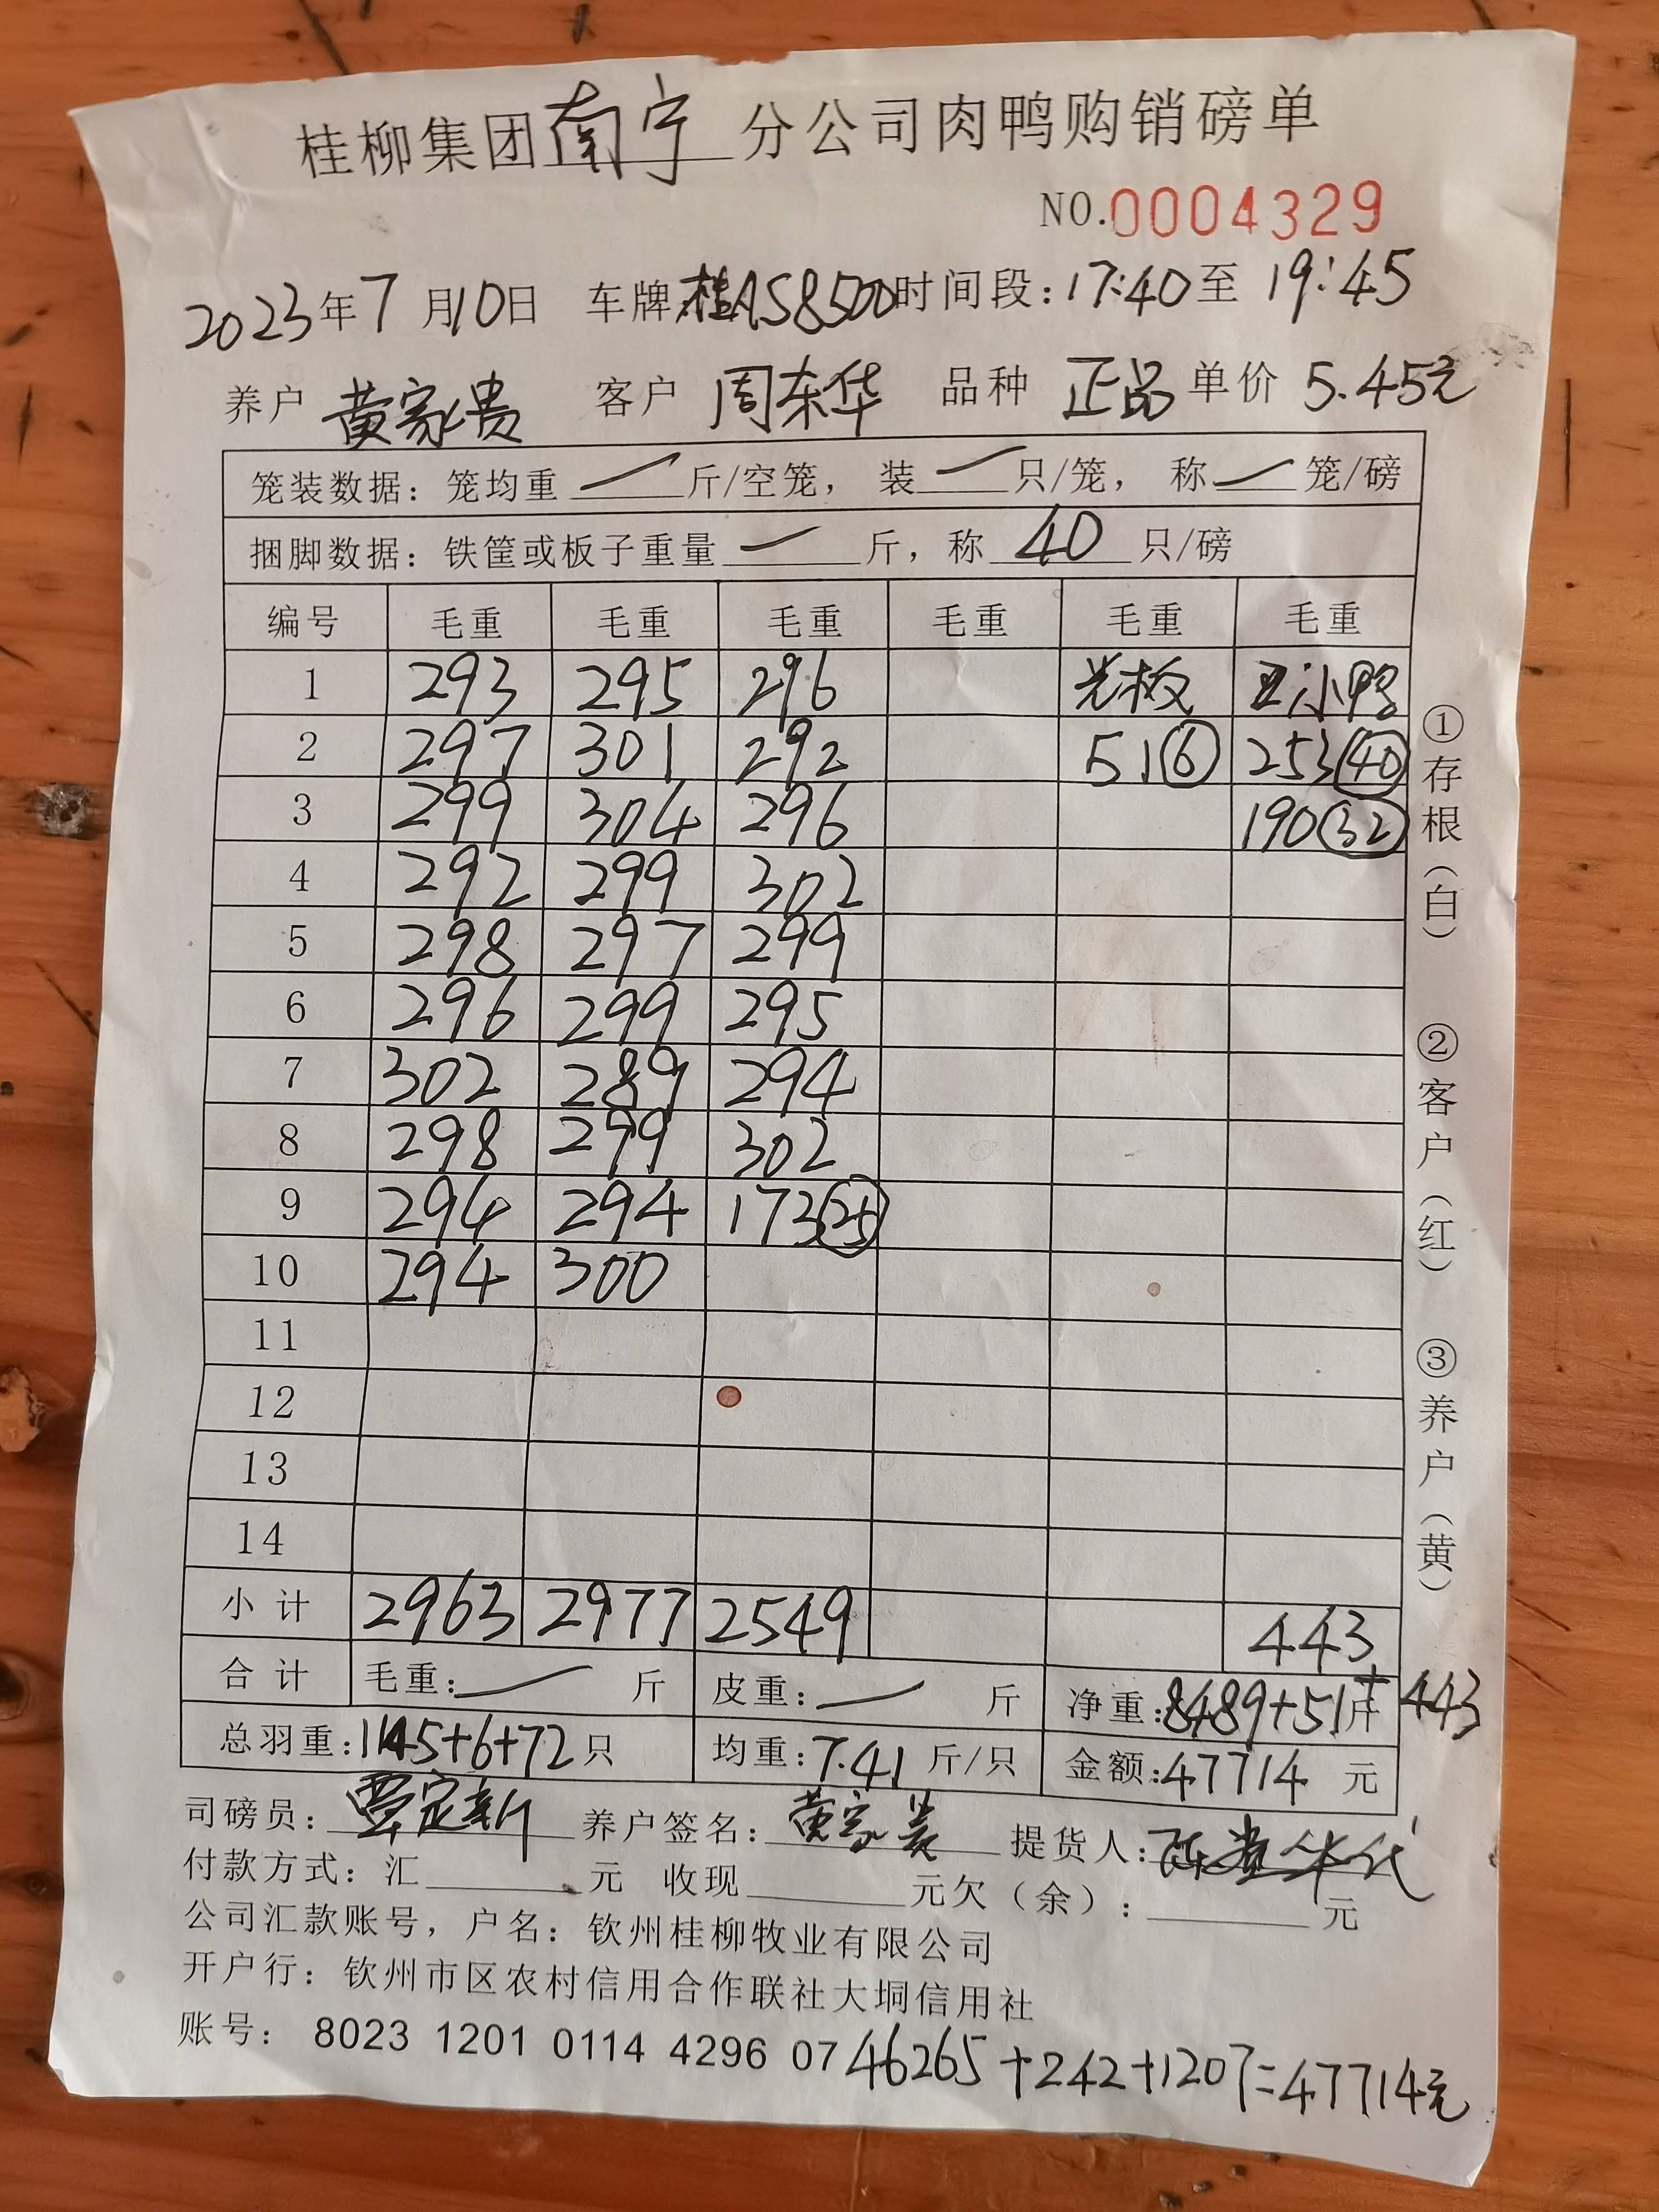 桂柳集团南宁分公司肉鸭购销磅单
NO.0004329
2023年7月10日 车牌:桂AS8500 时间段:17:40至19:45
养户 黄家贵 客户 周东华 品种 正品 单价 5.45元
笼装数据:笼均重 — 斤/空笼,装 — 只/笼,称 — 笼/磅
捆脚数据:铁筐或板子重量 — 斤,称 40 只/磅
编号 毛重 毛重 毛重 毛重 毛重 毛重
1 293 295 296 光板 小鸭
2 297 301 292 51⑥ 253㊵
3 299 304 296 190㉜
4 292 299 302
5 298 297 299
6 296 299 295
7 302 289 294
8 298 299 302
9 294 294 173㉕
10 294 300
11
12
13
14
小计 2963 2977 2549 443
合计 毛重:— 斤 皮重:— 斤 净重:8489+51斤+443
总羽重:1145+6+72只 均重:7.41斤/只 金额:47714 元
司磅员:覃定新 养户签名:黄家贵 提货人:
付款方式:汇 元 收现 元欠(余): 元
公司汇款账号,户名:钦州桂柳牧业有限公司
开户行:钦州市区农村信用合作联社大垌信用社
账号: 8023 1201 0114 4296 07
46265+242+1207=47714元
①存根(白) ②客户(红) ③养户(黄)